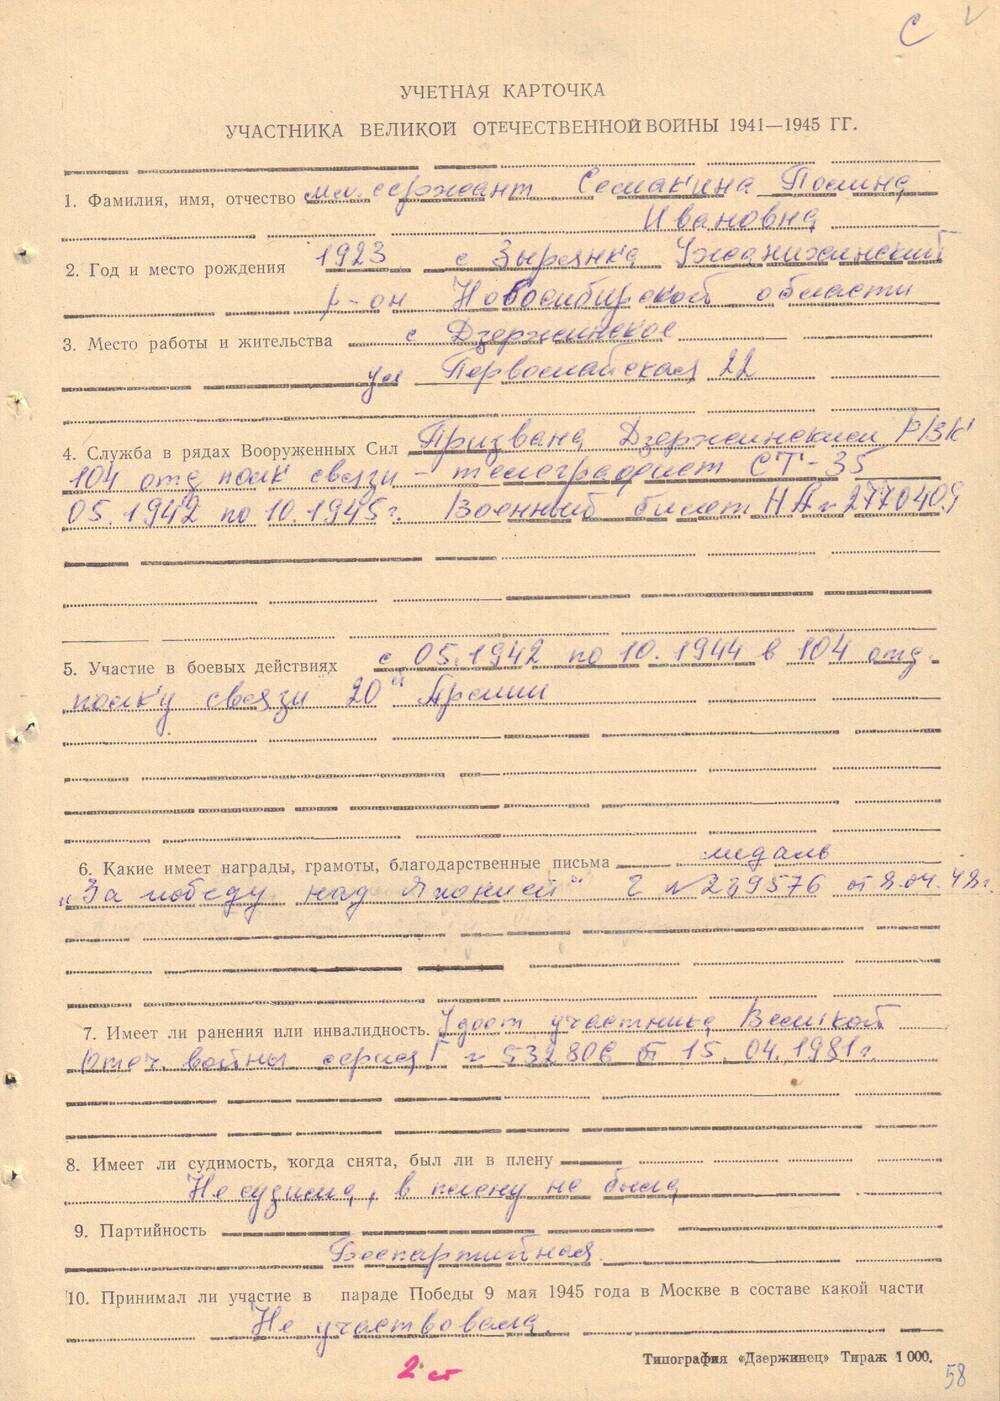 С
УЧЕТНАЯ КАРТОЧКА
УЧАСТНИКА ВЕЛИКОЙ ОТЕЧЕСТВЕННОЙ ВОЙНЫ 1941—1945 ГГ.
1. Фамилия, имя, отчество мл. сержант Семакина Полина
Ивановна
2. Год и место рождения 1923 с Зырянка
р-он Новосибирской области
3. Место работы и жительства с Дзержинское
ул Первомайская 22
4. Служба в рядах Вооруженных Сил Призвана Дзержинским РВК
104 отд полк связи – телеграфист СТ-35
05.1942 по 10.1945г. Военный билет НА № 2770409
5. Участие в боевых действиях с 05.1942 по 10.1944 в 104 отд.
полку связи 20й Армии
6. Какие имеет награды, грамоты, благодарственные письма медаль
„За победу над Японией" Г № 239576 от 8.04.48г.
7. Имеет ли ранения или инвалидность. Удост участника Великой
Отеч. войны серия Г № 532806 от 15.04.1981г.
8. Имеет ли судимость, когда снята, был ли в плену
Не судима, в плену не была
9. Партийность
Беспартийная.
10. Принимал ли участие в параде Победы 9 мая 1945 года в Москве в составе какой части
Не участвовала.
Типография «Дзержинец» Тираж 1 000.
2 ст
58